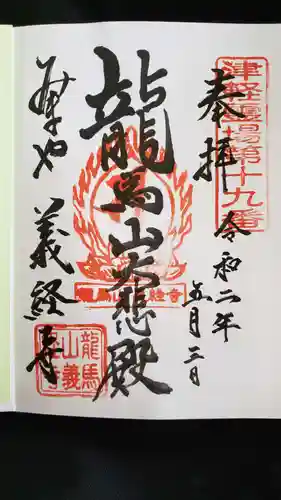 津軽霊場第十九番
奉拝
令和二年
五月三日
龍馬山大悲殿
龍馬山義経寺
みんまや
義経寺
龍馬
山義
経寺